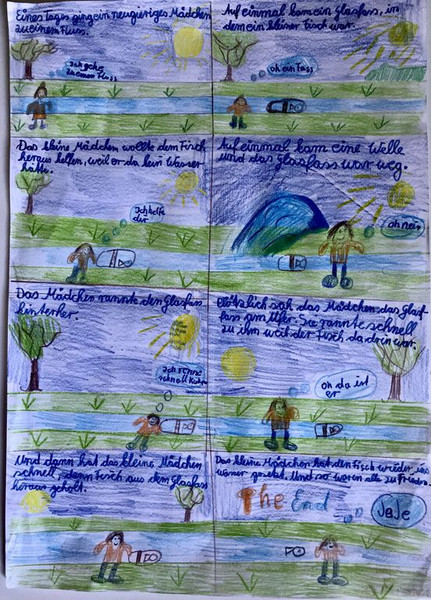 Eines Tages ging ein neugieriges Mädchen
zu einem Fluss.
Ich gehe
zu einem Fluss
Auf einmal kam ein Glasfass, in
dem ein kleiner Fisch war.
oh ein Fass
Das kleine Mädchen wollte dem Fisch
heraus helfen, weil er da kein Wasser
hätte.
Ich helfe
dir
Auf einmal kam eine Welle
und das Glasfass war weg.
oh nein
Das Mädchen rannte den Glasfass
hinterher.
Ich renne
schnell
Plötzlich sah das Mädchen das Glas
fass am Ufer. Sie rannte schnell
zu ihm weil der Fisch da drin war.
oh da ist
er
Und dann hat das kleine Mädchen
schnell den Fisch aus dem Glasfass
heraus geholt.
Das kleine Mädchen hat den Fisch wieder ins
wasser getat. Und so waren alle zufrieden.
The End
JaJe